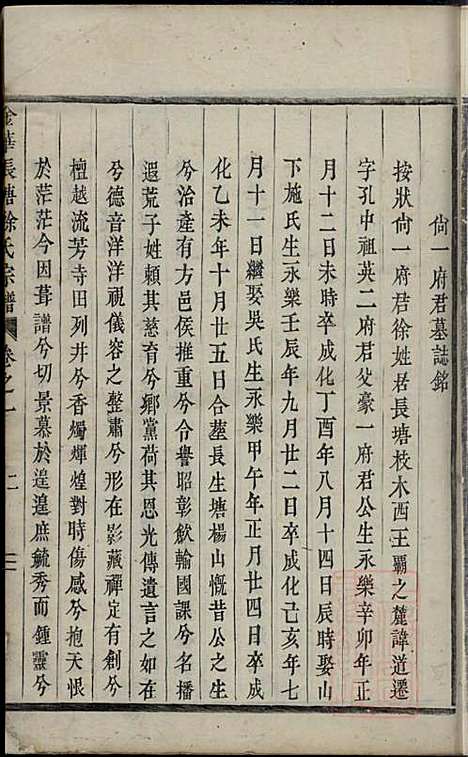 尙一府君墓誌銘
按狀尙一府君徐姓居長塘枝木西王霸之麓諱道遷
字孔中祖英二府君父豪一府君公生永樂辛卯年正
月十二日未時卒成化丁酉年八月十四日辰時娶山
下施氏生永樂壬辰年九月廿二日卒成化己亥年七
月十一日繼娶吳氏生永樂甲午年正月廿四日卒成
化乙未年十月廿五日合塟長生塘楊山慨昔公之生
兮治產有方兮邑侯推重兮令譽昭彰飲輸國課兮名播
遐荒子姓賴其慈育兮鄉黨荷其恩光傳遺言之如在
兮德音洋洋視儀容之整肅兮形在影藏禪定有創兮
檀越流芳寺田列井兮香燭輝煌對時傷感兮抱天恨
於茫茫今因葺譜兮切景慕於遑遑庶毓秀而鍾靈兮
金華長塘徐氏宗譜 卷之一 二 三